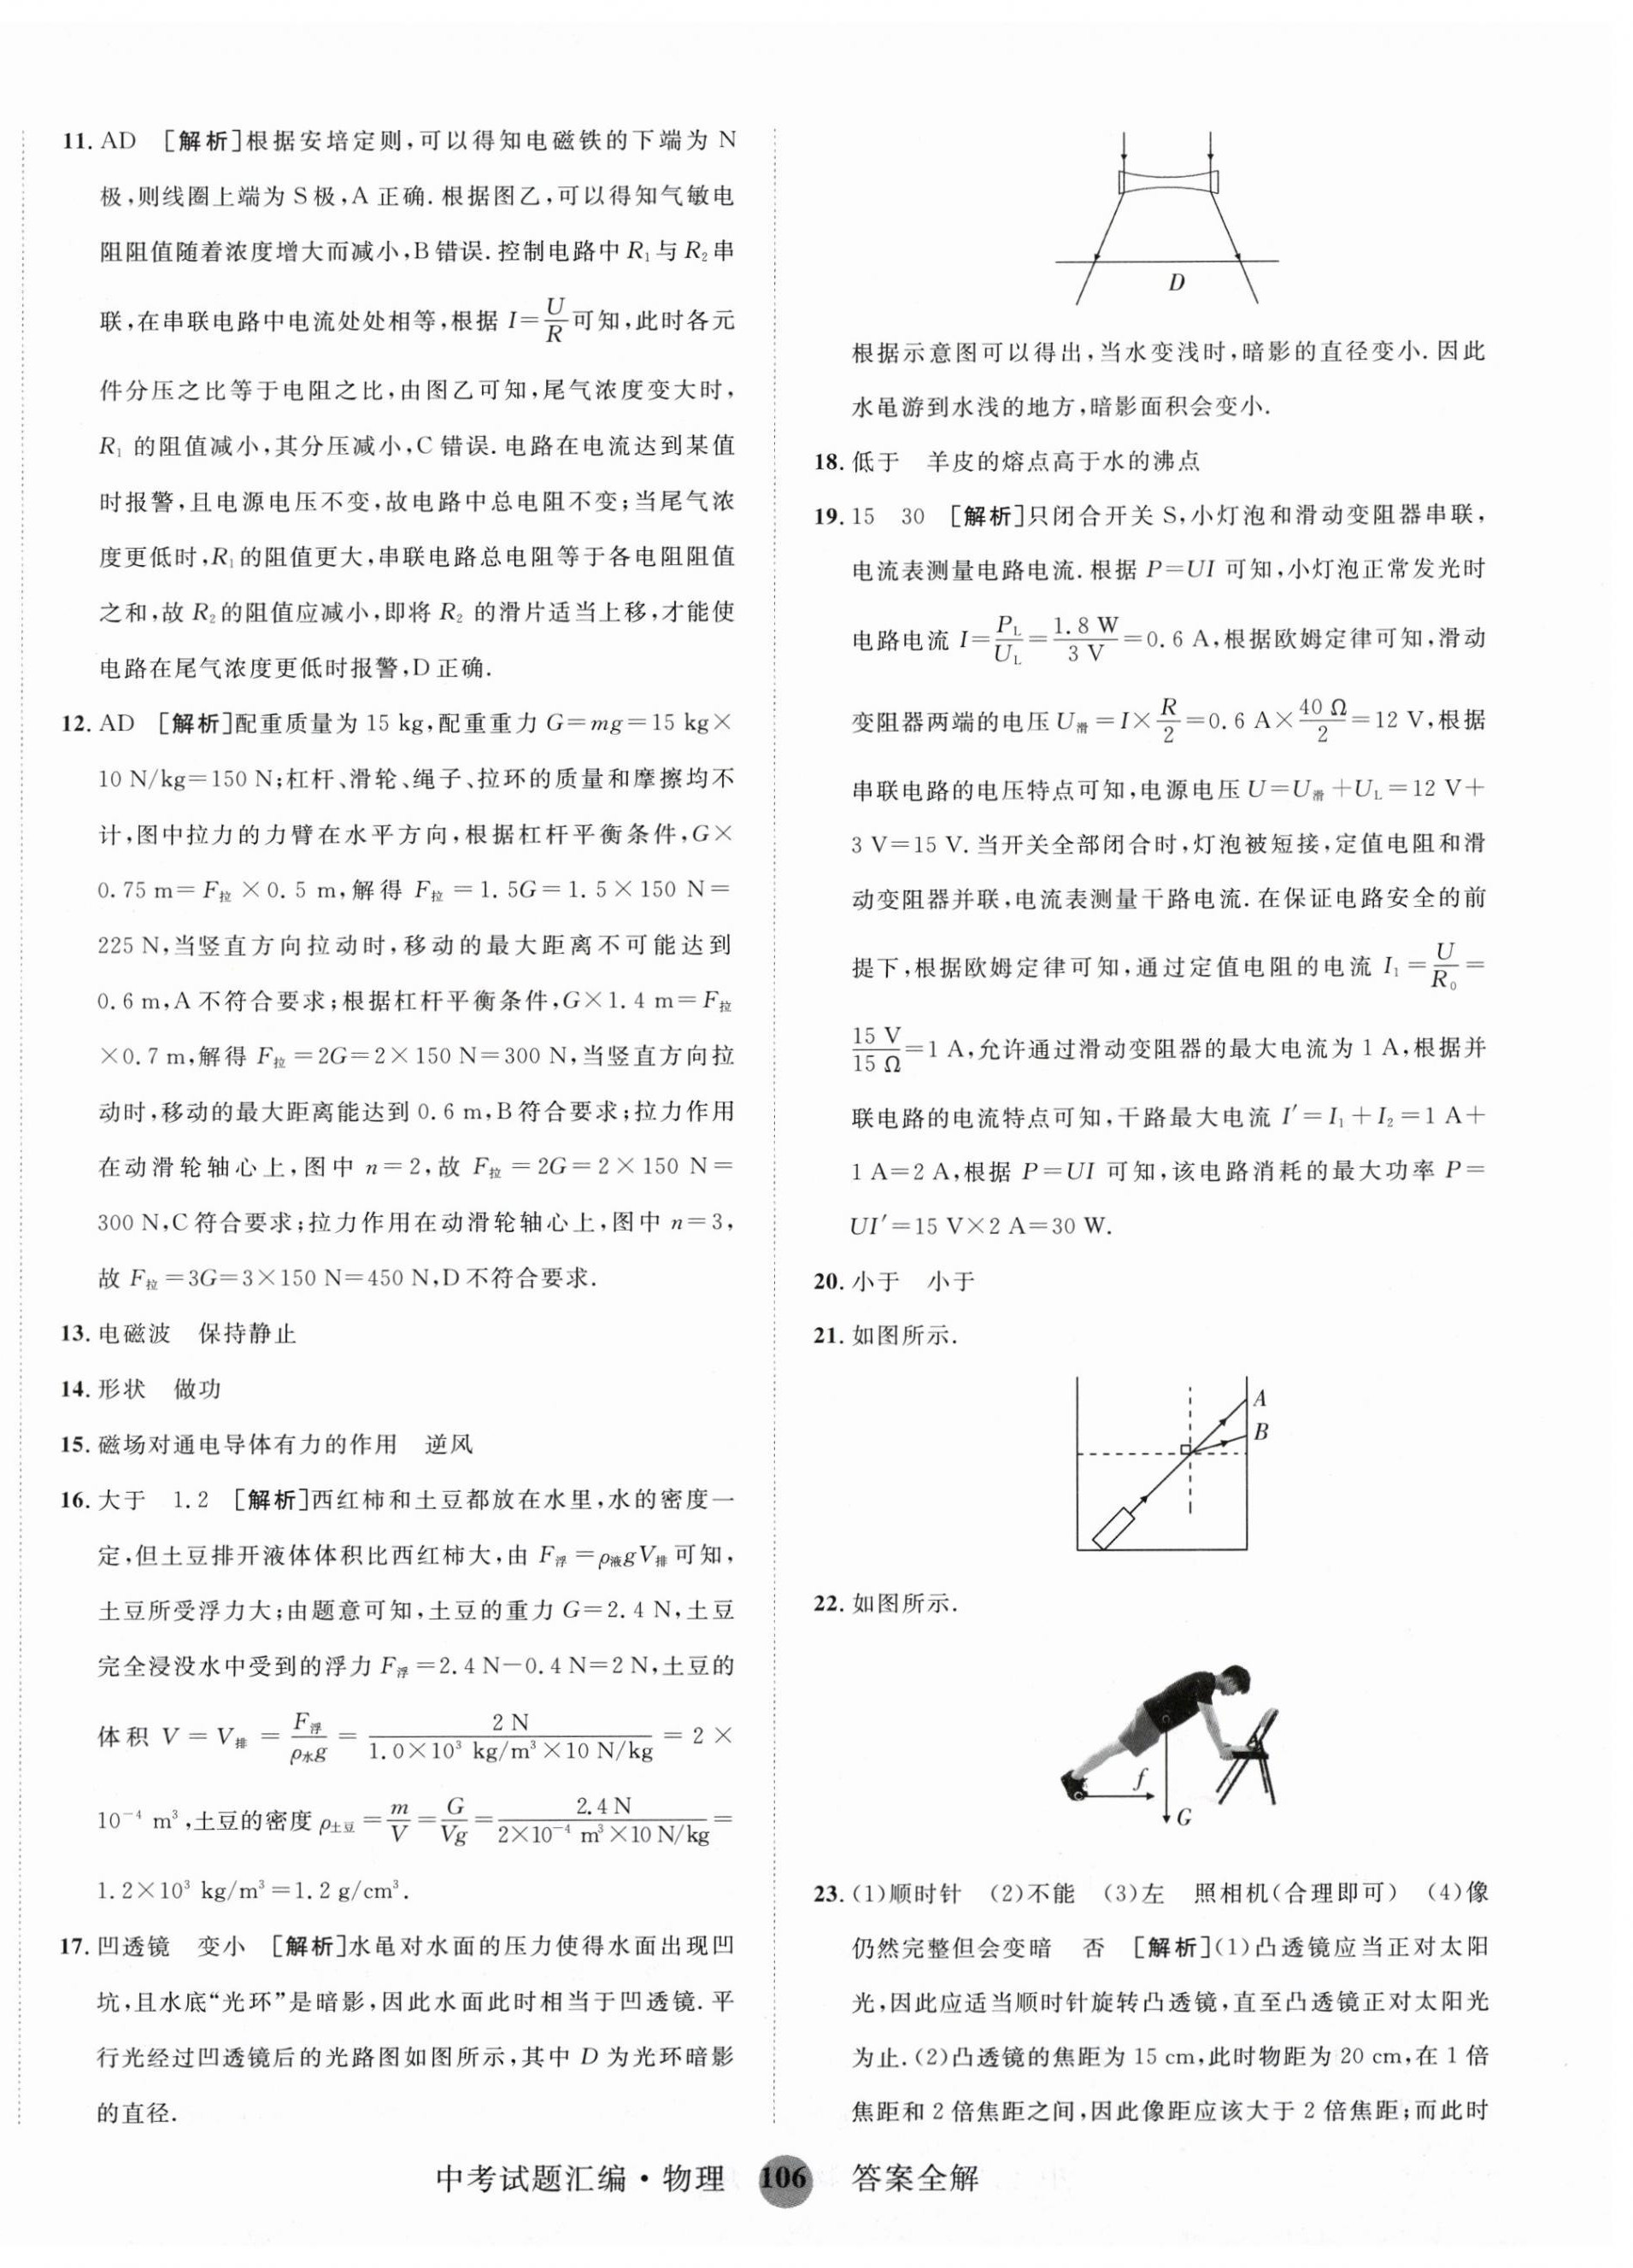 11. AD [解析]根据安培定则,可以得知电磁铁的下端为 N
极,则线圈上端为 S 极,A 正确. 根据图乙,可以得知气敏电
阻阻值随着浓度增大而减小,B 错误. 控制电路中 R₁ 与 R₂ 串
联,在串联电路中电流处处相等,根据 I=U/R 可知,此时各元
件分压之比等于电阻之比,由图乙可知,尾气浓度变大时,
R₁ 的阻值减小,其分压减小,C 错误. 电路在电流达到某值
时报警,且电源电压不变,故电路中总电阻不变;当尾气浓
度更低时,R₁ 的阻值更大,串联电路总电阻等于各电阻阻值
之和,故 R₂ 的阻值应减小,即将 R₂ 的滑片适当上移,才能使
电路在尾气浓度更低时报警,D 正确.
12. AD [解析]配重质量为 15 kg,配重重力 G=mg=15 kg×
10 N/kg=150 N;杠杆、滑轮、绳子、拉环的质量和摩擦均不
计,图中拉力的力臂在水平方向,根据杠杆平衡条件,G×
0.75 m=F拉×0.5 m,解得 F拉=1.5G=1.5×150 N=
225 N,当竖直方向拉动时,移动的最大距离不可能达到
0.6 m,A 不符合要求;根据杠杆平衡条件,G×1.4 m=F拉
×0.7 m,解得 F拉=2G=2×150 N=300 N,当竖直方向拉
动时,移动的最大距离能达到 0.6 m,B 符合要求;拉力作用
在动滑轮轴心上,图中 n=2,故 F拉=2G=2×150 N=
300 N,C 符合要求;拉力作用在动滑轮轴心上,图中 n=3,
故 F拉=3G=3×150 N=450 N,D 不符合要求.
13. 电磁波 保持静止
14. 形状 做功
15. 磁场对通电导体有力的作用 逆风
16. 大于 1.2 [解析]西红柿和土豆都放在水里,水的密度一
定,但土豆排开液体体积比西红柿大,由 F浮=ρ液gV排 可知,
土豆所受浮力大;由题意可知,土豆的重力 G=2.4 N,土豆
完全浸没水中受到的浮力 F浮=2.4 N−0.4 N=2 N,土豆的
体积 V=V排=F浮/ρ水g=2 N/1.0×10³ kg/m³×10 N/kg=2×
10⁻⁴ m³,土豆的密度 ρ土豆=m/V=G/Vg=2.4 N/2×10⁻⁴ m³×10 N/kg=
1.2×10³ kg/m³=1.2 g/cm³.
17. 凹透镜 变小 [解析]水黾对水面的压力使得水面出现凹
坑,且水底“光环”是暗影,因此水面此时相当于凹透镜. 平
行光经过凹透镜后的光路图如图所示,其中 D 为光环暗影
的直径.
D
根据示意图可以得出,当水变浅时,暗影的直径变小. 因此
水黾游到水浅的地方,暗影面积会变小.
18. 低于 羊皮的熔点高于水的沸点
19. 15 30 [解析]只闭合开关 S,小灯泡和滑动变阻器串联,
电流表测量电路电流. 根据 P=UI 可知,小灯泡正常发光时
电路电流 I=P_L/U_L=1.8 W/3 V=0.6 A,根据欧姆定律可知,滑动
变阻器两端的电压 U滑=I×R/2=0.6 A×40 Ω/2=12 V,根据
串联电路的电压特点可知,电源电压 U=U滑+U_L=12 V+
3 V=15 V. 当开关全部闭合时,灯泡被短接,定值电阻和滑
动变阻器并联,电流表测量干路电流. 在保证电路安全的前
提下,根据欧姆定律可知,通过定值电阻的电流 I₁=U/R₀=
15 V/15 Ω=1 A,允许通过滑动变阻器的最大电流为 1 A,根据并
联电路的电流特点可知,干路最大电流 I′=I₁+I₂=1 A+
1 A=2 A,根据 P=UI 可知,该电路消耗的最大功率 P=
UI′=15 V×2 A=30 W.
20. 小于 小于
21. 如图所示.
A
B
22. 如图所示.
f
G
23. (1)顺时针 (2)不能 (3)左 照相机(合理即可) (4)像
仍然完整但会变暗 否 [解析](1)凸透镜应当正对太阳
光,因此应适当顺时针旋转凸透镜,直至凸透镜正对太阳光
为止. (2)凸透镜的焦距为 15 cm,此时物距为 20 cm,在 1 倍
焦距和 2 倍焦距之间,因此像距应该大于 2 倍焦距;而此时
中考试题汇编·物理 106 答案全解